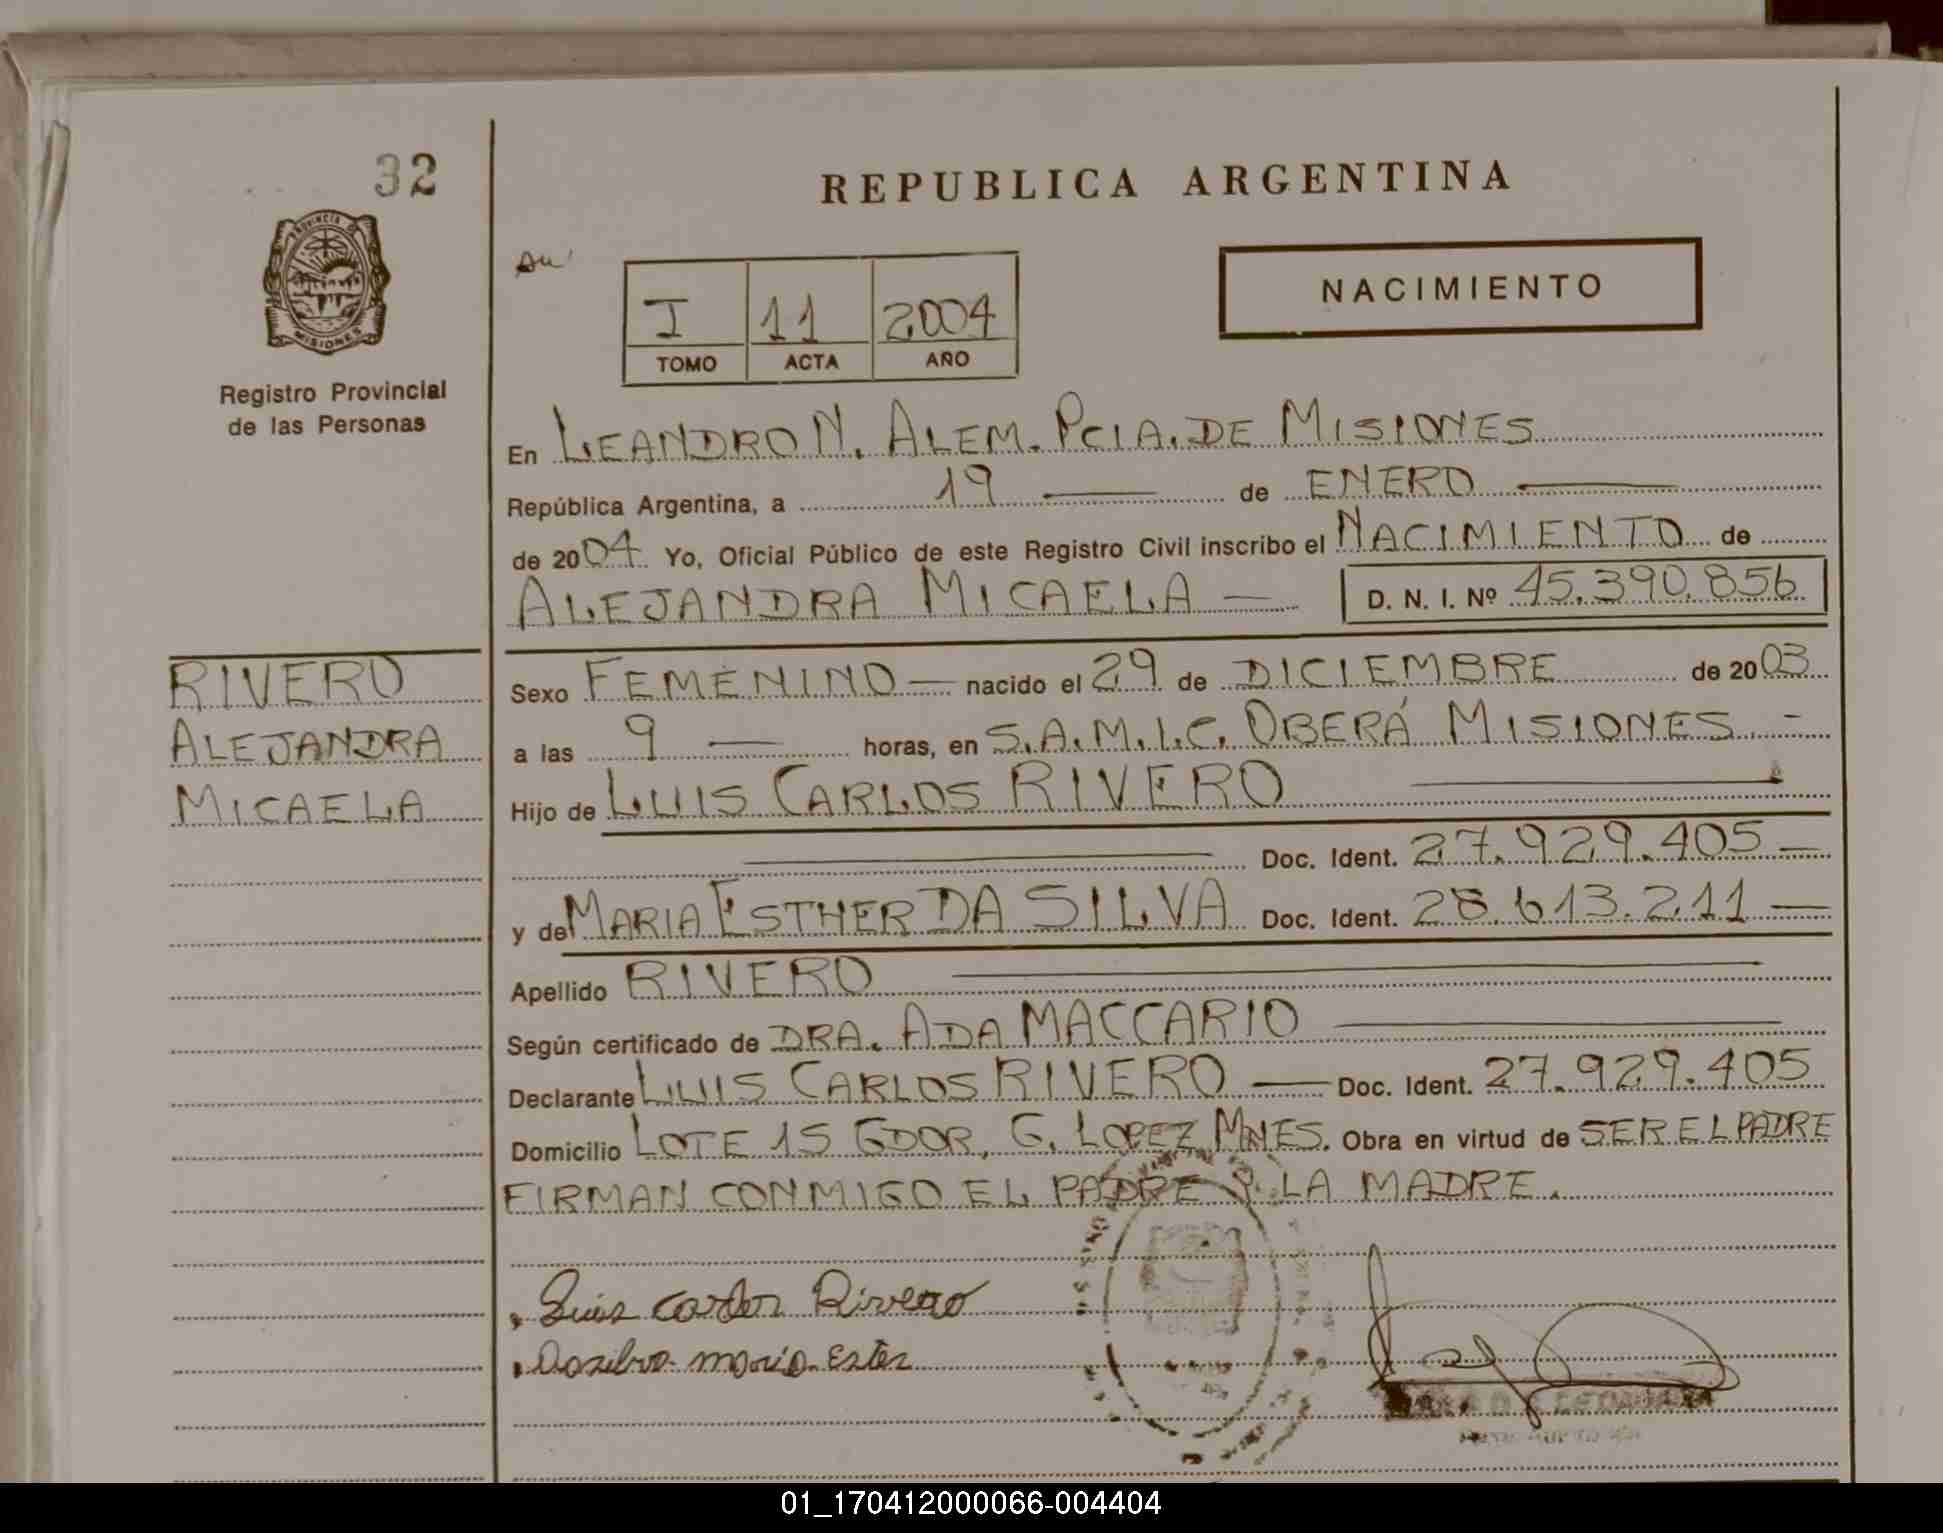 32
PROVINCIA DE
MISIONES
Registro Provincial
de las Personas
REPUBLICA ARGENTINA
NACIMIENTO
I 11 2004
TOMO ACTA AÑO
En LEANDRO N. ALEM. PCIA. DE MISIONES
República Argentina, a 19 — de ENERO —
de 2004 Yo, Oficial Público de este Registro Civil inscribo el NACIMIENTO de
ALEJANDRA MICAELA — D. N. I. Nº 45.390.856
RIVERO
ALEJANDRA
MICAELA
Sexo FEMENINO — nacido el 29 de DICIEMBRE de 2003
a las 9 — horas, en S.A.M.I.C. OBERÁ MISIONES. -
Hijo de LUIS CARLOS RIVERO —
— Doc. Ident. 27.929.405 —
y de MARIA ESTHER DA SILVA Doc. Ident. 28.613.211 —
Apellido RIVERO —
Según certificado de DRA. ADA MACCARIO —
Declarante LUIS CARLOS RIVERO — Doc. Ident. 27.929.405
Domicilio LOTE 15 GDOR. G. LOPEZ MNES. Obra en virtud de SER EL PADRE
FIRMAN CONMIGO EL PADRE Y LA MADRE.
Luis Carlos Rivero
Dasilva maria Ester
01_170412000066-004404